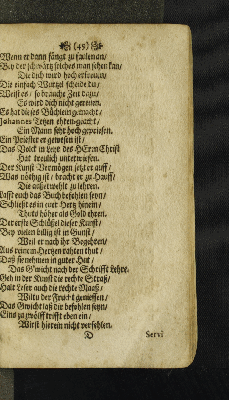 (49)
Wenn er dann fängt zu faulen an/
Bey der schwärtz solches man sehen kan/
Die dich wird hoch erfreuen/
Die einfach Wurtzel scheide du/
Weist es/ so brauche Zeit dazu/
Es wird dich nicht gereuen.
Es hat dieses Büchlein gemacht/
Johannes Tetzen ehren-geacht/
Ein Mann sehr hoch gepriesen.
Ein Priester er gewesen ist/
Das Volck in Lehr des HErrn Christ
Hat treulich unterwiesen.
Der Kunst Vermögen setzt er auff/
Was nöthig ist/ bracht er zu Hauff/
Die außerwehlt zu lehren.
Lasst euch das Buch befohlen seyn/
Schliest es in euer Hertz hinein/
Thuts höher als Gold ehren.
Der erste Schlüssel dieser Kunst/
Bey vielen billig ist in Gunst/
Weil er nach ihr Begehren/
Aus reinem Hertzen rahten thut/
Daß sie nehmen in guter Hut/
Das Gwicht nach der Schrifft Lehre.
Geh in der Kunst die rechte Straß/
Halt Leser auch die rechte Maaß/
Wiltu der Frucht geniessen/
Das Gwicht laß dir befohlen seyn/
Eins zu zwölff trifft eben ein/
Wirst hierin nicht verfehlen.
D Servi